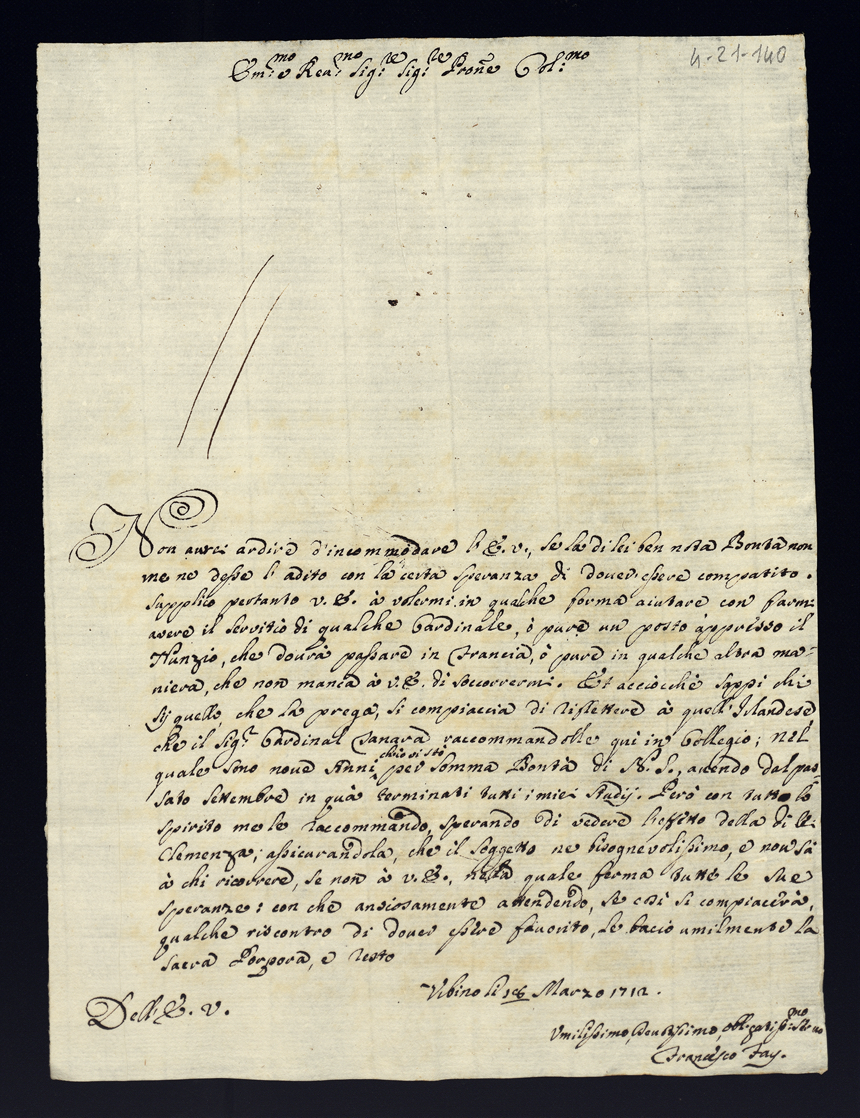 4-21-140
Em:mo e Reu:mo Sig:re Sig:re Prone Col:mo
Non aurei ardire d'incommodare l'E. V., se la di lei ben nota Bontà non
me ne desse l'adito con la certa speranza di douer essere compatito.
Supplico pertanto V. E. à volermi in qualche forma aiutare con farmi
avere il servitio di qualche Cardinale, ò pure un posto appresso il
Nunzio, che dourà passare in Francia, ò pure in qualche altra ma-
niera, che non manca à V. E. di soccorrermi. Et acciocche sappi chi
sij quello, che la prega, si compiaccia di riflettere à quell'Irlandese
che il Sig:r Cardinal raccommandolle qui in Collegio; nel
quale sono noue Anni chio si stò per somma Bontà di N. S., auendo dal pas-
sato Settembre in quà terminati tutti i miei Studij. Però con tutto lo
spirito me le raccommando, sperando di vedere l'effetto della di lei
Clemenza; assicurandola, che il soggetto ne bisognevolissimo, e non sà
à chi ricorrere, se non à V. E., nella quale ferma tutte le sue
speranze: con che ansiosamente attendendo, se così si compiacerà,
qualche riscontro di douer essere fauorito, le bacio umilmente la
Sacra Porpora, e resto
Vrbino li 18 Marzo 1712.
Dell'E. V.
Vmilissimo, Deuotissimo, obligatissi:mo Ser:uo
Francesco Fay.